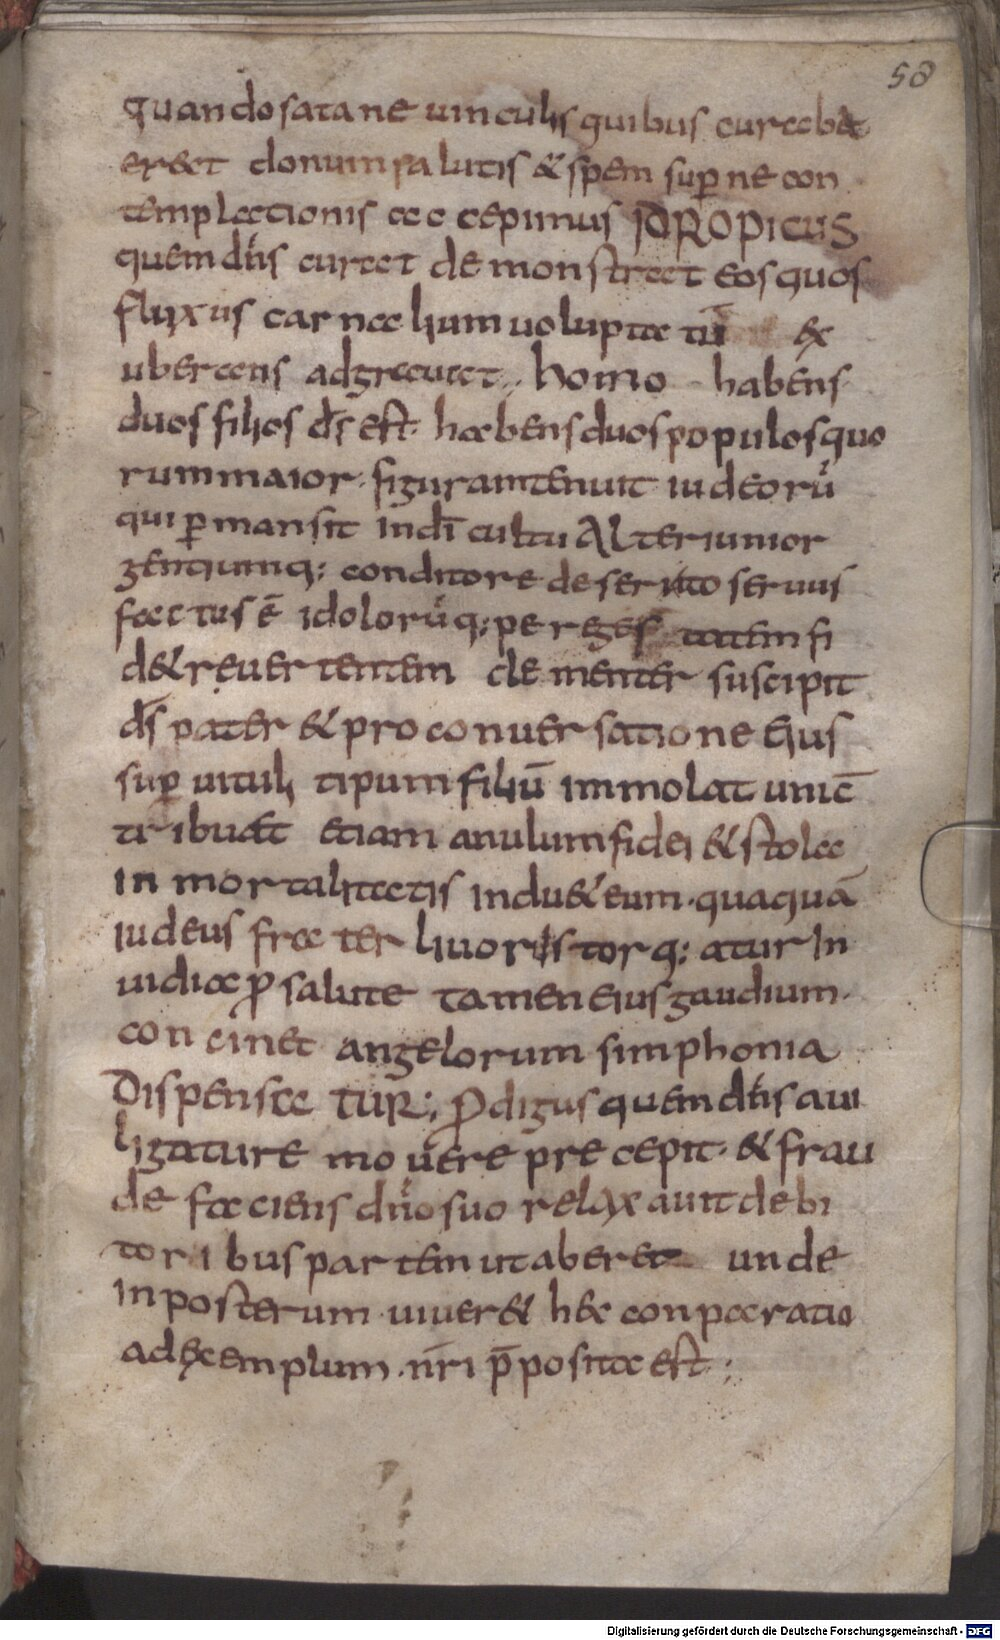 58
quando satane uinculis quibus curabat
erat donum salutis & spem superne con
templationis accepimus IDROPICUS
quem dn̄s curat demonstrat eos quos
fluxus carnalium uoluptatū ex
uberans adgrauat. homo habens
duos filios d̄s est habens duos populos quo
rum maior figuram tenuit iudeorū
qui permansit in dī cultu Alter iunior
gentiumq; conditore deserto seruus
factus ē idolorūq; per egestatem fi
de& reuertentem clementer suscipit
d̄s pater & pro conuersatione eius
super uituli tipum filiū immolat unic̄
tribuat etiam anulum fidei & stola
inmortalitatis indu& eum. quaquā
iudeus frater liuoris torq;atur In
uidia ꝓ salute tamen eius gaudium.
concinet angelorum simphonia
DispensaTUR; prodigus quem dn̄s aui
ligature mouere precepit. & frau
de faciens dn̄o suo relaxauit debi
toribus partem ut aberet unde
in posterum uiuer& hec conparatio
ad exemplum nr̄i p̄posita est;
Digitalisierung gefördert durch die Deutsche Forschungsgemeinschaft - DFG